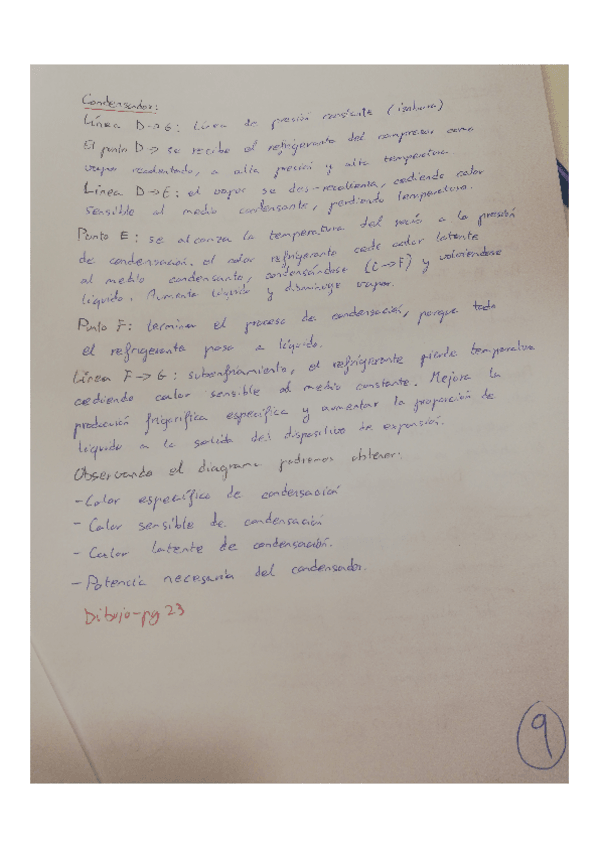 Condensador:
Línea D→G: Línea de presión constante (isobara)
El punto D→ se recibe el refrigerante del compresor como
vapor recalentado, a alta presión y alta temperatura.
Línea D→E: el vapor se des-recalienta, cediendo calor
sensible al medio condensante, perdiendo temperatura.
Punto E: se alcanza la temperatura del a la presión
de condensación. el refrigerante cede calor latente
al medio condensante, condensándose (E→F) y volviendose
líquido. Aumenta líquido y disminuye vapor.
Punto F: terminar el proceso de condensación, porque todo
el refrigerante pasa a líquido.
Línea F→G: subenfriamiento, el refrigerante pierde temperatura
cediendo calor sensible al medio constante. Mejora la
producción frigorífica específica y aumentar la proporción de
líquido a la salida del dispositivo de expansión.
Observando el diagrama podremos obtener:
- Calor específico de condensación
- Calor sensible de condensación
- Calor latente de condensación.
- Potencia necesaria del condensador.
Dibujo-pg 23
9